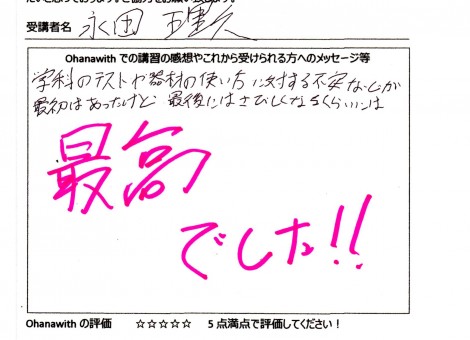 受講者名 永田
Ohanawith での講習の感想やこれから受けられる方へのメッセージ等
学科のテストや器材の使い方に対する不安なしが
最初はあったけど 最後にはさびしくなるくらいには
最高
でした!!
Ohanawith の評価 ☆☆☆☆☆ 5点満点で評価してください!